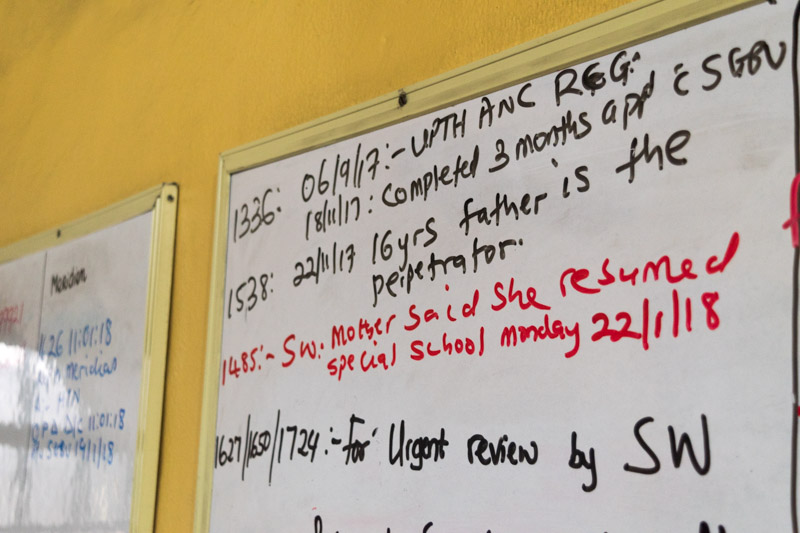 Meridian
11:01:18
meridian
HTN
11:01:18
1336: 06/9/17:- UPTH ANC REG:
18/11/17: Completed 3 months app c̄ SGBV
1538: 22/11/17 16yrs father is the
perpetrator.
1485:- SW:. Mother said she resumed
special school monday 22/1/18
1627/1650/1724:- For Urgent review by SW